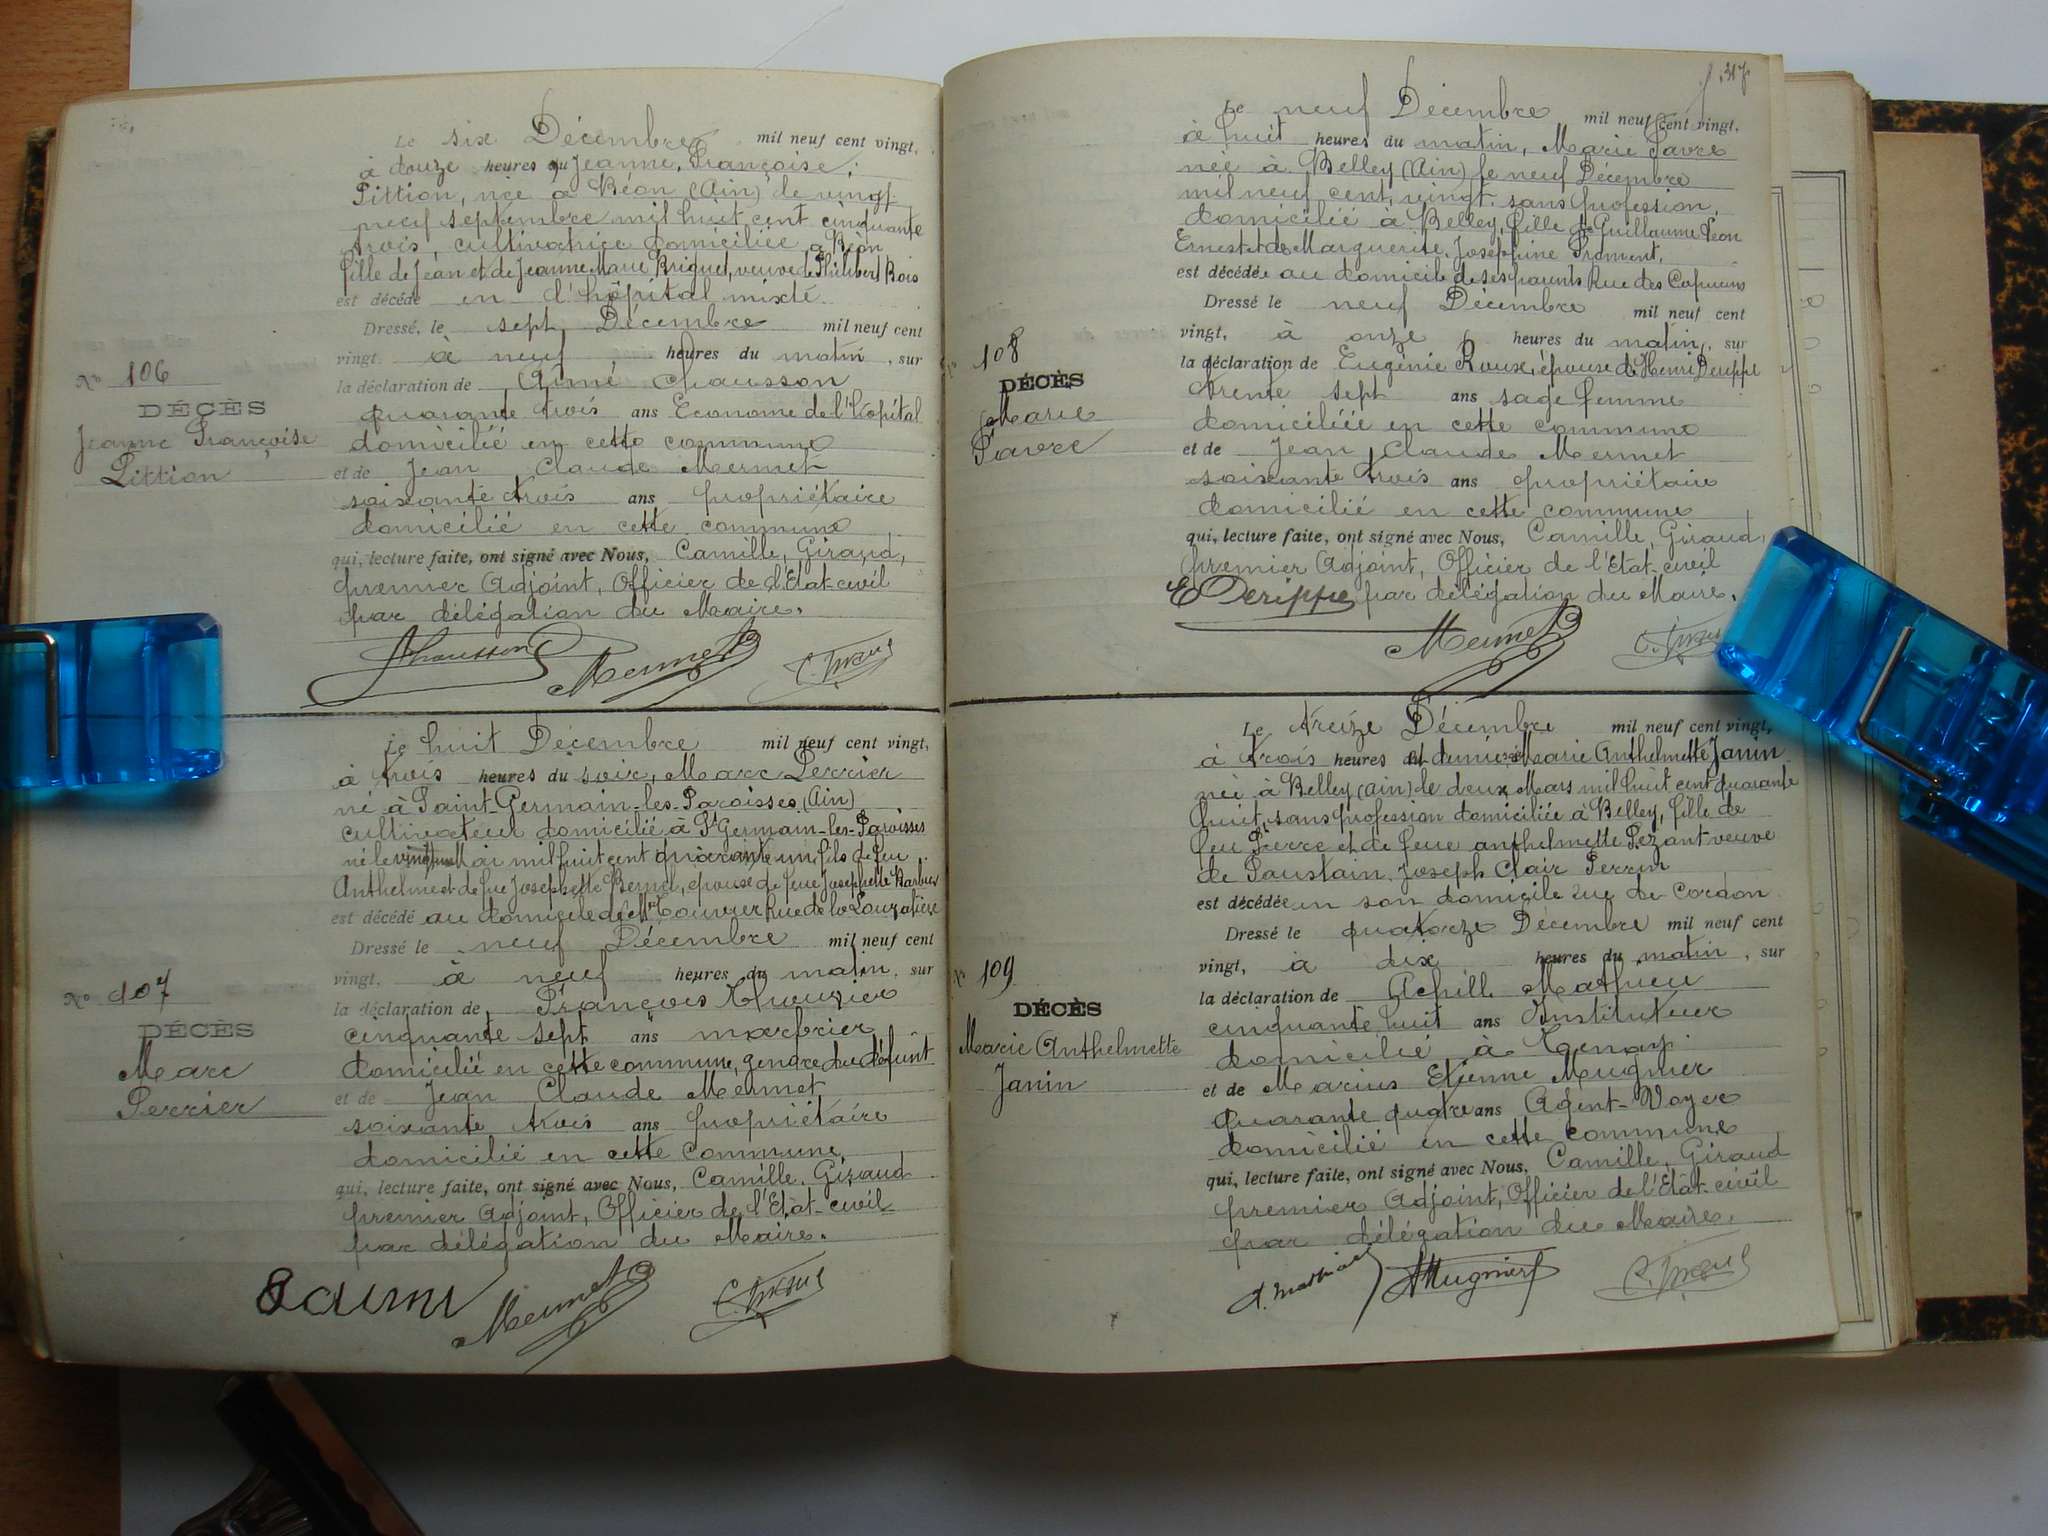 Le six Décembre mil neuf cent vingt,
à douze heures Jeanne, Françoise,
Pittion, née à Béon (Ain) le vingt
neuf septembre mil huit cent cinquante
trois, cultivatrice domiciliée à Béon
fille de Jean et de Jeanne Marie Briguet, veuve de Philibert Bois
est décédé en l'hôpital mixte
Dressé, le sept Décembre mil neuf cent
vingt à neuf heures du matin, sur
la déclaration de Aimé Chausson
quarante trois ans Econome de l'hôpital
domicilié en cette commune
et de Jean Claude Mermet
soixante trois ans propriétaire
domicilié en cette commune
qui, lecture faite, ont signé avec Nous, Camille, Giraud,
premier Adjoint, Officier de l'Etat-civil
par délégation du Maire.
Chausson Mermet C. Giraud
No 106
DÉCÈS
Jeanne Françoise
Pittion
Le huit Décembre mil neuf cent vingt,
à trois heures du soir, Marc Perrier
né à Saint-Germain-les-Paroisses (Ain)
cultivateur domicilié à St Germain-les-Paroisses
né le Mai mil huit cent quarante un, fils de feu
Anthelme et de feue Josephette Bernel, époux de feue Josephette
est décédé au domicile de Rue de la
Dressé le neuf Décembre mil neuf cent
vingt, à neuf heures du matin, sur
la déclaration de François
cinquante sept ans marbrier
domicilié en cette commune, gendre du défunt
et de Jean Claude Mermet
soixante trois ans propriétaire
domicilié en cette commune,
qui, lecture faite, ont signé avec Nous, Camille, Giraud
premier Adjoint, Officier de l'Etat-civil
par délégation du Maire.
Mermet C. Giraud
No 107
DÉCÈS
Marc
Perrier
Le neuf Décembre mil neuf cent vingt,
à huit heures du matin, Marie Favre
née à Belley (Ain) le neuf Décembre
mil neuf cent, vingt, sans profession,
domiciliée à Belley, fille de Guillaume Léon
Ernest et de Marguerite, Joséphine Froment,
est décédée au domicile de ses parents Rue des Capucins
Dressé le neuf Décembre mil neuf cent
vingt, à onze heures du matin, sur
la déclaration de Eugénie Roux, épouse de Henri Derippe
trente sept ans sage femme
domiciliée en cette commune
et de Jean, Claude Mermet
soixante trois ans propriétaire
domicilié en cette commune
qui, lecture faite, ont signé avec Nous, Camille, Giraud,
premier Adjoint, Officier de l'Etat-civil
par délégation du Maire.
E Derippe Mermet C. Giraud
No 108
DÉCÈS
Marie
Favre
Le treize Décembre mil neuf cent vingt,
à trois heures et demie Marie Anthelmette Janin
née à Belley (Ain) le deux Mars mil huit cent quarante
huit, sans profession domiciliée à Belley, fille de
feu Pierre et de feue Anthelmette Pezant veuve
de Faustain Joseph Clair Perrin
est décédée en son domicile rue de Cordon
Dressé le quatorze Décembre mil neuf cent
vingt, à dix heures du matin, sur
la déclaration de Achille Mathieu
cinquante huit ans Instituteur
domicilié à Tenay
et de Marius Etienne Mugnier
quarante quatre ans Agent-Voyer
domicilié en cette commune
qui, lecture faite, ont signé avec Nous, Camille, Giraud
premier Adjoint, Officier de l'Etat-civil
par délégation du Maire.
A. Mathieu Mugnier C. Giraud
No 109
DÉCÈS
Marie Anthelmette
Janin